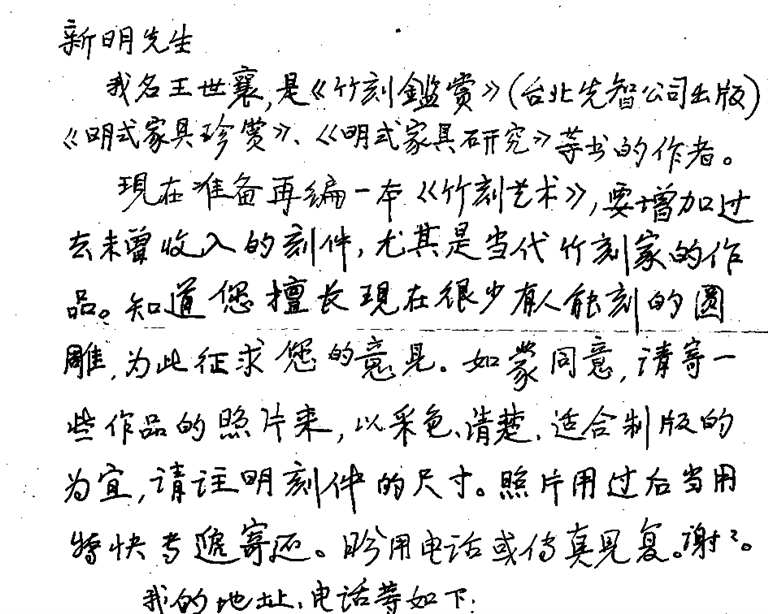 新明先生
我名王世襄,是《竹刻鑑赏》(台北先智公司出版)
《明式家具珍赏》、《明式家具研究》等书的作者。
現在准备再编一本《竹刻艺术》,要增加过
去未曾收入的刻件,尤其是当代竹刻家的作
品。知道您擅长現在很少有人能刻的圆
雕,为此征求您的意見。如蒙同意,请寄一
些作品的照片来,以采色、清楚、适合制版的
为宜,请注明刻件的尺寸。照片用过后当用
特快专遞寄还。盼用电话或传真見复。谢々。
我的地址、电话等如下: